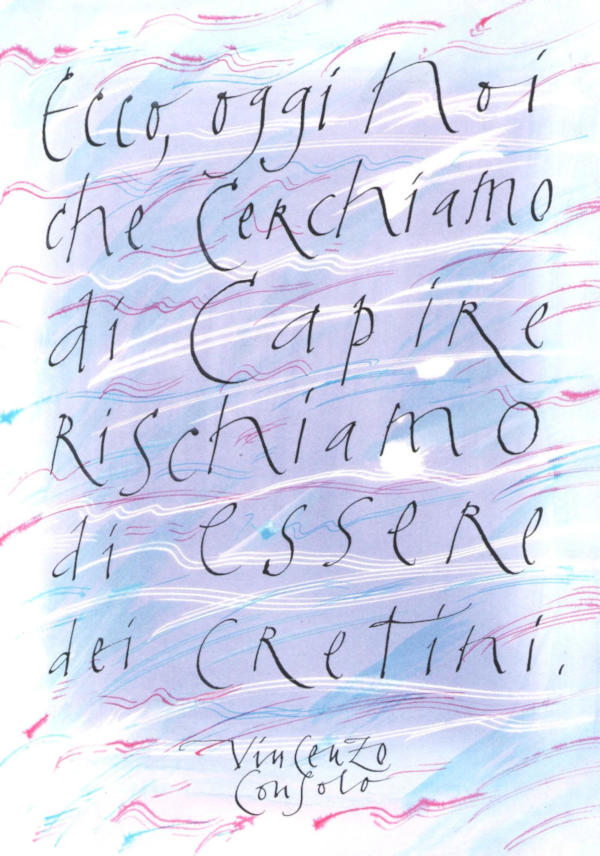 Ecco, oggi noi
che cerchiamo
di capire
rischiamo
di essere
dei cretini.
Vincenzo
Consolo